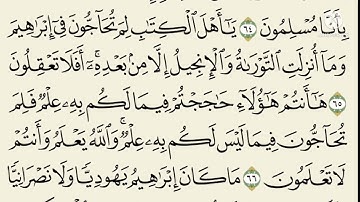 بِأَنَّا مُسْلِمُونَ ٦٤ يَٰٓأَهْلَ ٱلْكِتَٰبِ لِمَ تُحَآجُّونَ فِىٓ إِبْرَٰهِيمَ
وَمَآ أُنزِلَتِ ٱلتَّوْرَىٰةُ وَٱلْإِنجِيلُ إِلَّا مِنۢ بَعْدِهِۦٓ ۚ أَفَلَا تَعْقِلُونَ
٦٥ هَٰٓأَنتُمْ هَٰٓؤُلَآءِ حَٰجَجْتُمْ فِيمَا لَكُم بِهِۦ عِلْمٌ فَلِمَ
تُحَآجُّونَ فِيمَا لَيْسَ لَكُم بِهِۦ عِلْمٌ ۚ وَٱللَّهُ يَعْلَمُ وَأَنتُمْ
لَا تَعْلَمُونَ ٦٦ مَا كَانَ إِبْرَٰهِيمُ يَهُودِيًّا وَلَا نَصْرَانِيًّا